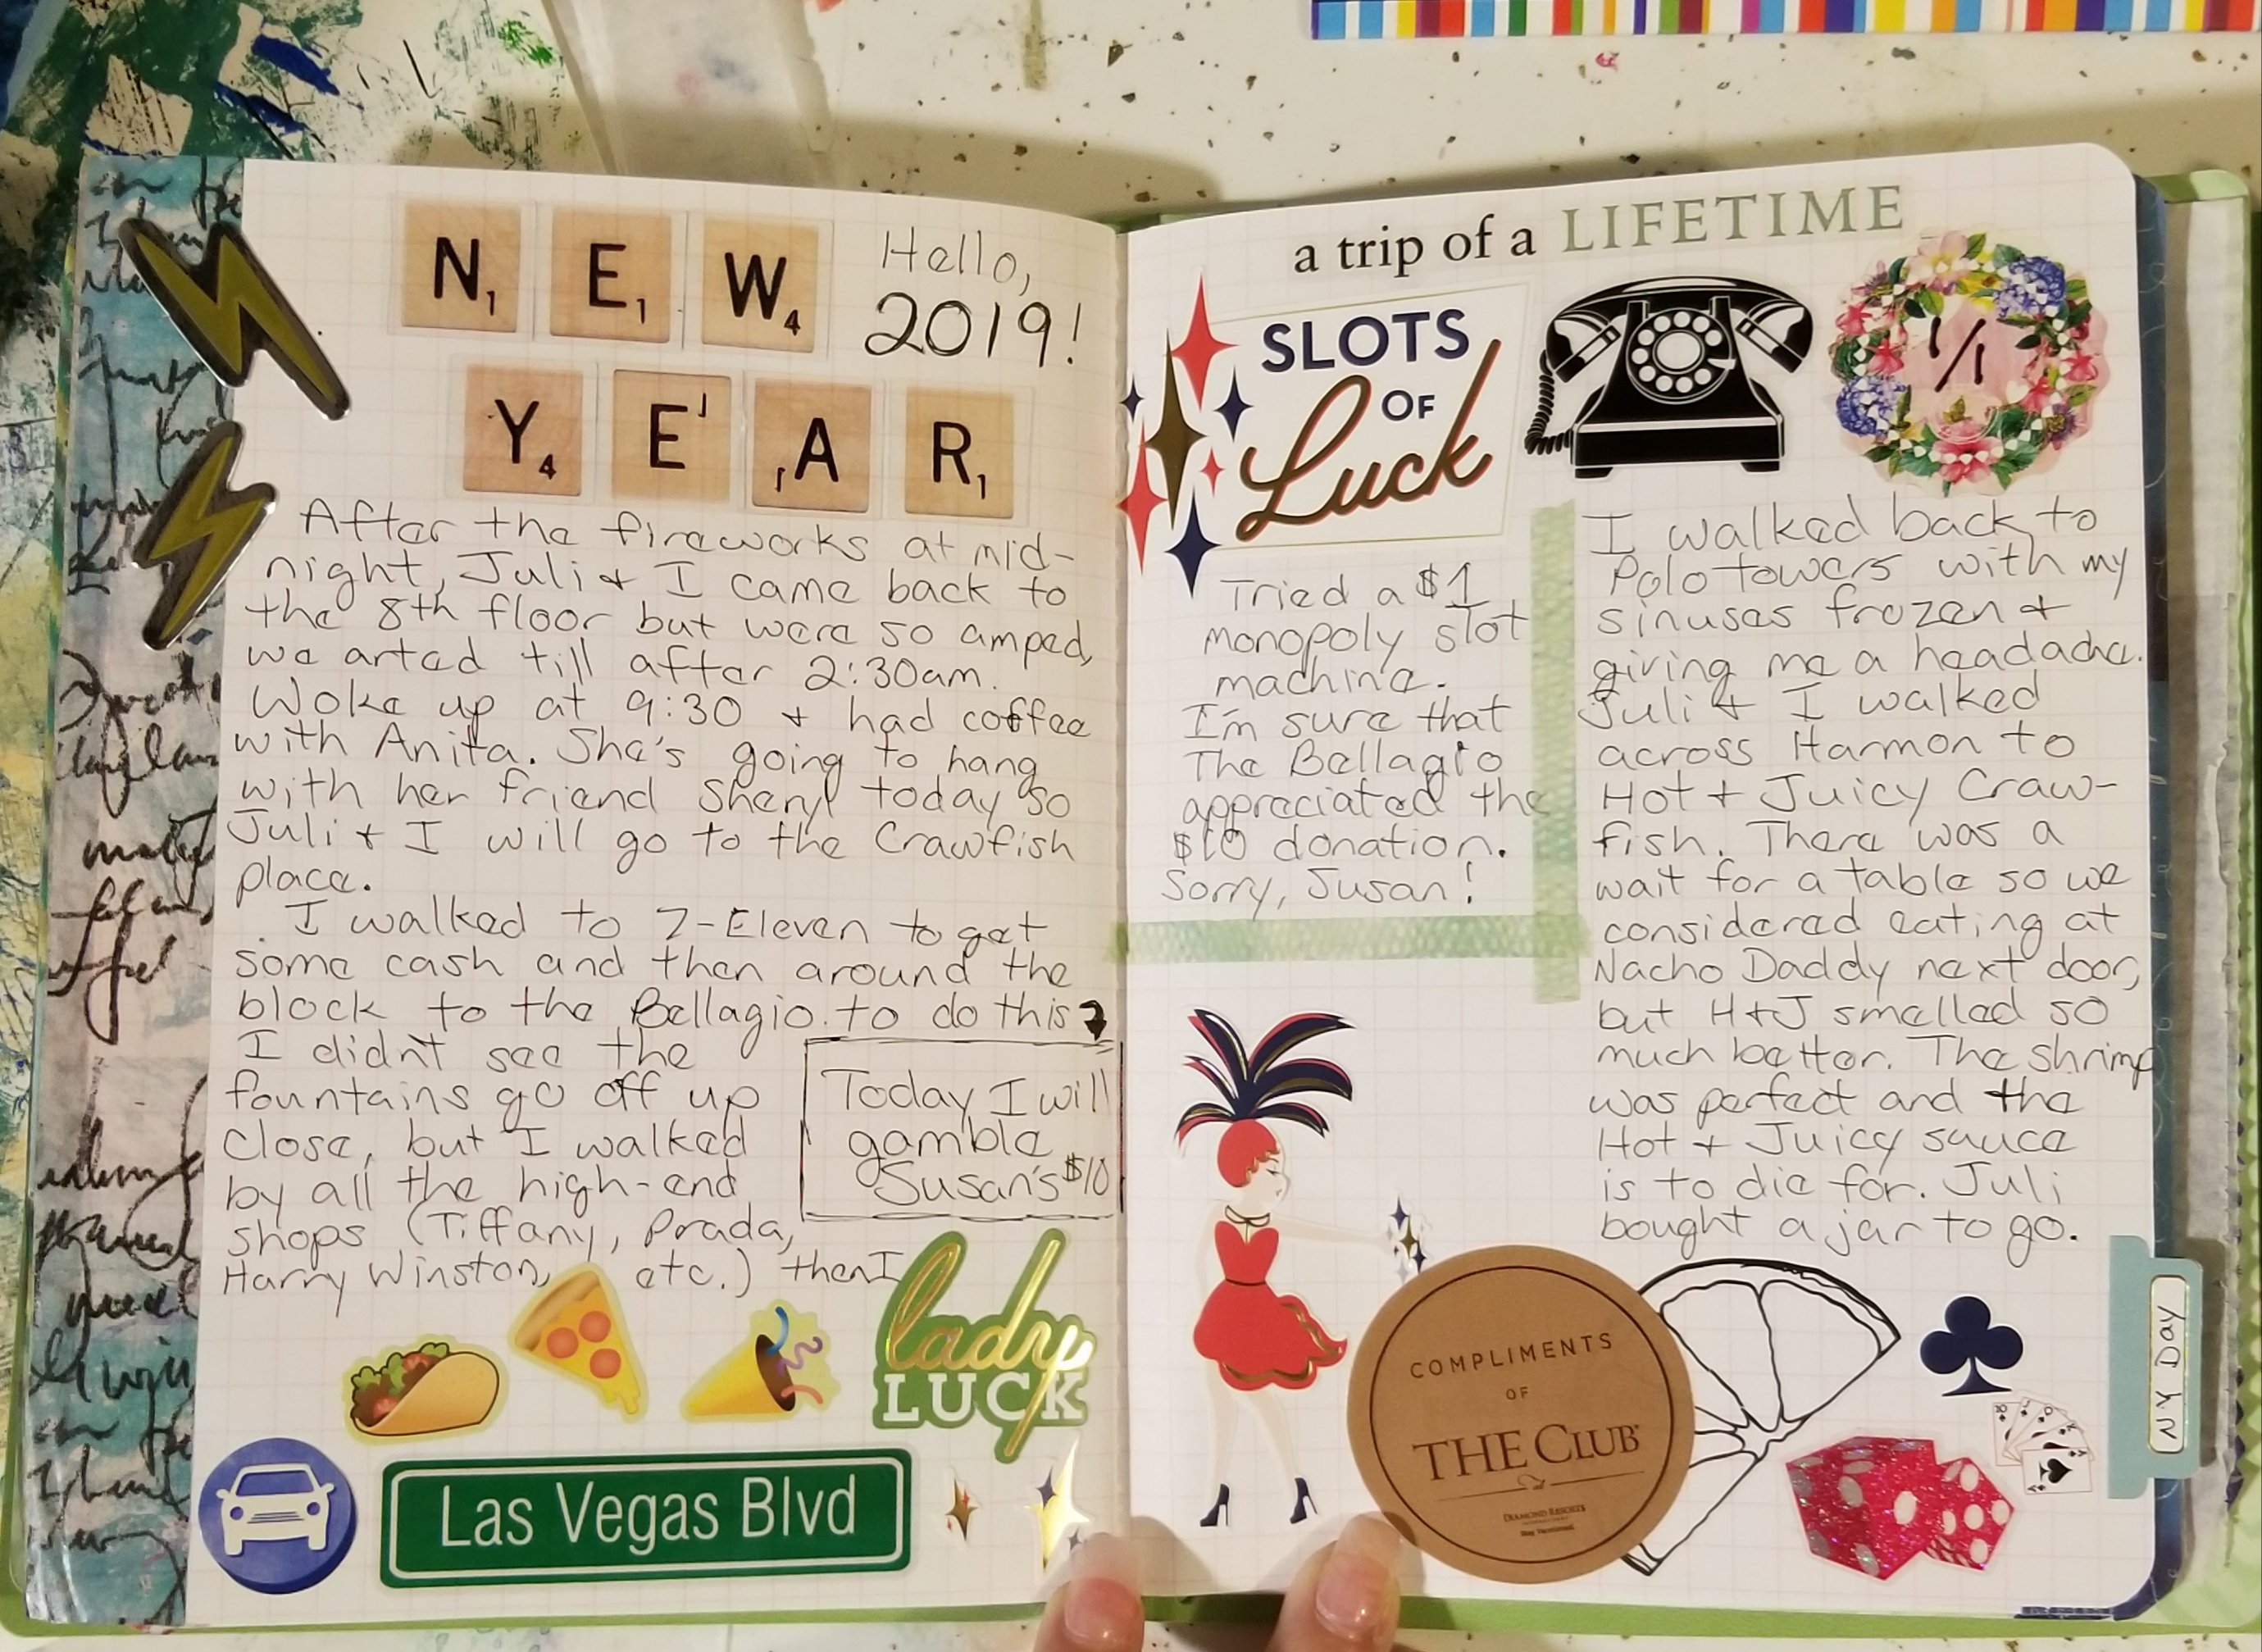 N1 E1 W4
Hello,
2019!
Y4 E1 A1 R1
After the fireworks at mid-
night, Juli & I came back to
the 8th floor but were so amped,
we arted till after 2:30am.
Woke up at 9:30 & had coffee
with Anita. She's going to hang
with her friend Sheryl today so
Juli & I will go to the Crawfish
place.
I walked to 7-Eleven to get
some cash and then around the
block to the Bellagio to do this
I didn't see the
fountains go off up
close, but I walked
by all the high-end
shops (Tiffany, Prada,
Harry Winston, etc.) then I
Today I will
gamble
Susan's $10
lady
LUCK
Las Vegas Blvd
a trip of a LIFETIME
SLOTS
OF
Luck
1/1
Tried a $1
monopoly slot
machine.
I'm sure that
The Bellagio
appreciated the
$10 donation.
Sorry, Susan!
I walked back to
Polo Towers with my
sinuses frozen &
giving me a headache.
Juli & I walked
across Harmon to
Hot & Juicy Craw-
fish. There was a
wait for a table so we
considered eating at
Nacho Daddy next door,
but H&J smelled so
much better. The shrimp
was perfect and the
Hot & Juicy sauce
is to die for. Juli
bought a jar to go.
COMPLIMENTS
OF
THE CLUB®
DIAMOND RESORTS
INTERNATIONAL
Stay Vacationed.
NY Day